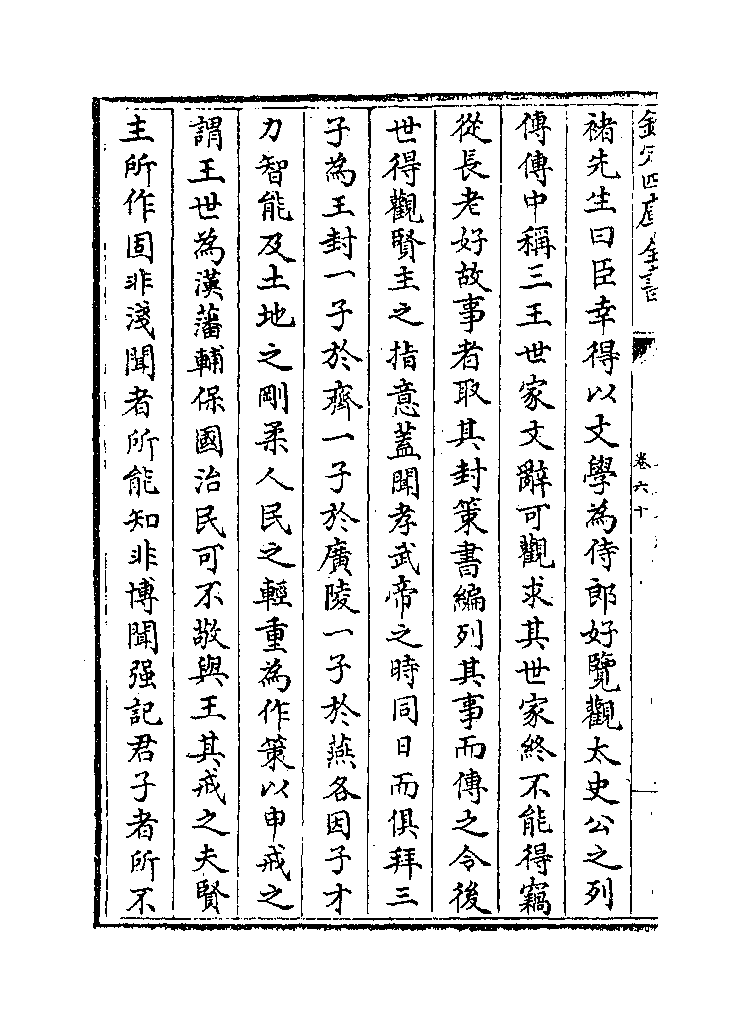 欽定四庫全書
卷六十
褚先生曰臣幸得以文學為侍郎好覽觀太史公之列
傳傳中稱三王世家文辭可觀求其世家終不能得竊
從長老好故事者取其封策書編列其事而傳之令後
世得觀賢主之指意蓋聞孝武帝之時同日而俱拜三
子為王封一子於齊一子於廣陵一子於燕各因子才
力智能及土地之剛柔人民之輕重為作策以申戒之
謂王世為漢藩輔保國治民可不敬與王其戒之夫賢
主所作固非淺聞者所能知非博聞强記君子者所不